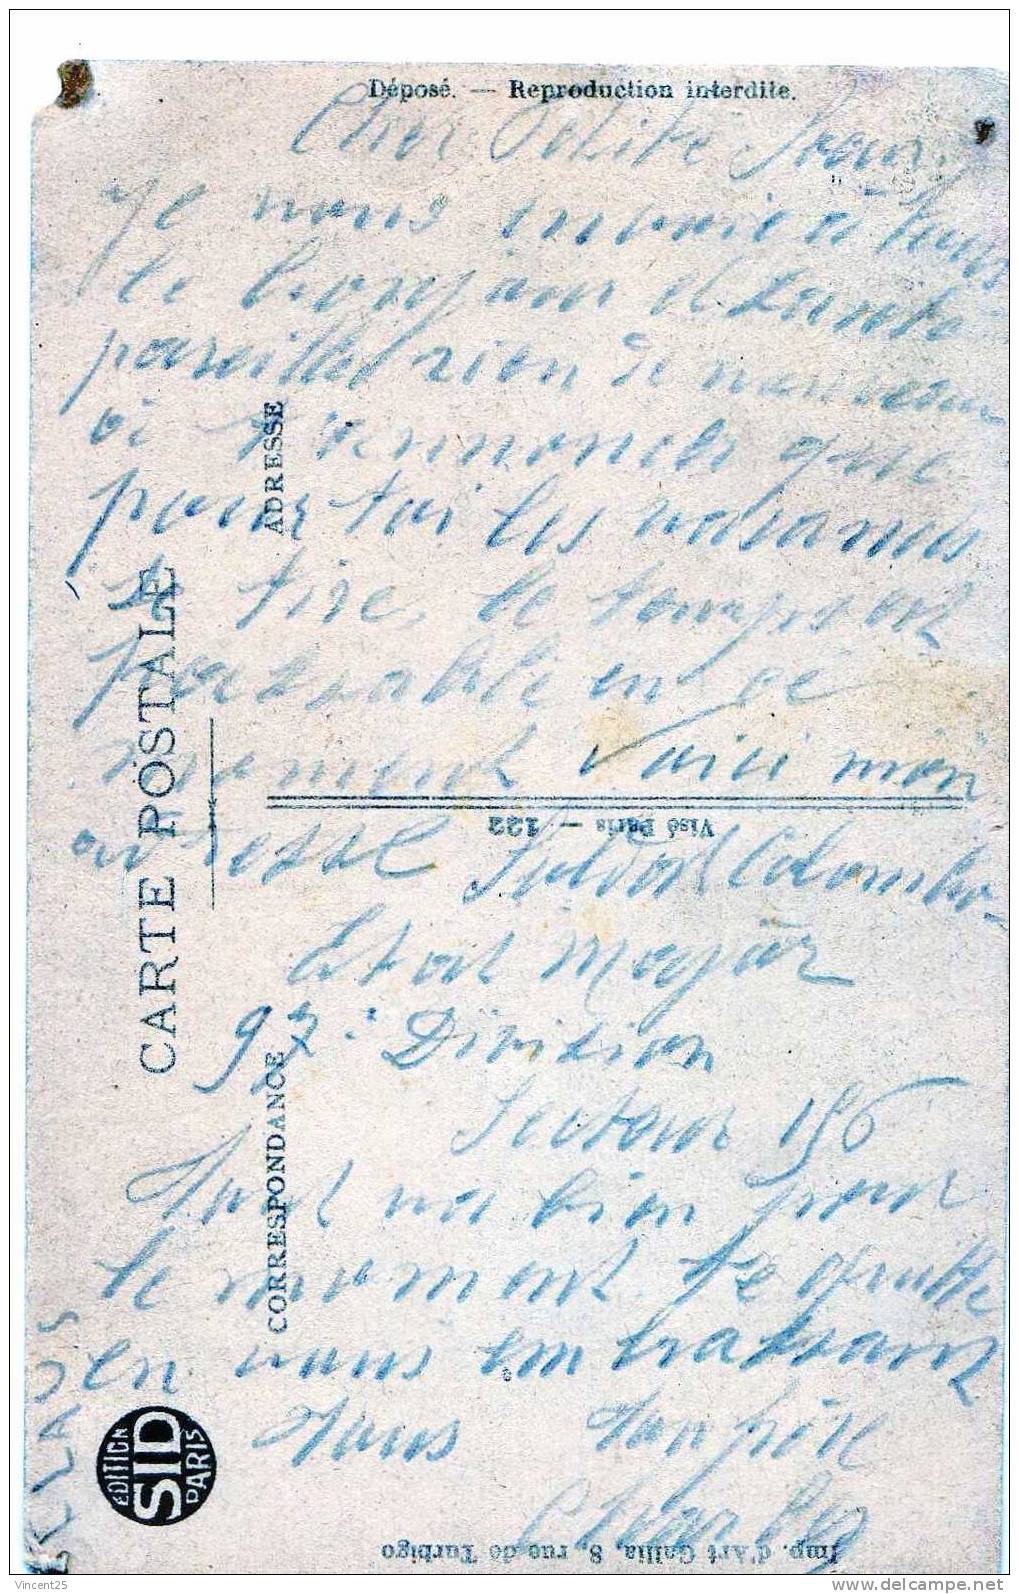 Déposé. — Reproduction interdite.
Cher Petite Jean
Je vous envoie à tous
le bonjour et santé
pareillel rien de nouveau
à t'ennoncer que
pour toi les vacances
se tire, le temps est
passable en ce
moment Voici mon
adresse Soldat Colombo
Etat Major
97e Division
Secteur 196
Tout va bien pour
le moment. Je quitte
en vous embrassant
tous ton père
Charles
CARTE POSTALE
ADRESSE
CORRESPONDANCE
Visé Paris — 122
EDITION
SID
PARIS
Imp. d'Art Gallia, 8, rue de Turbigo
Vincent25
www.delcampe.net